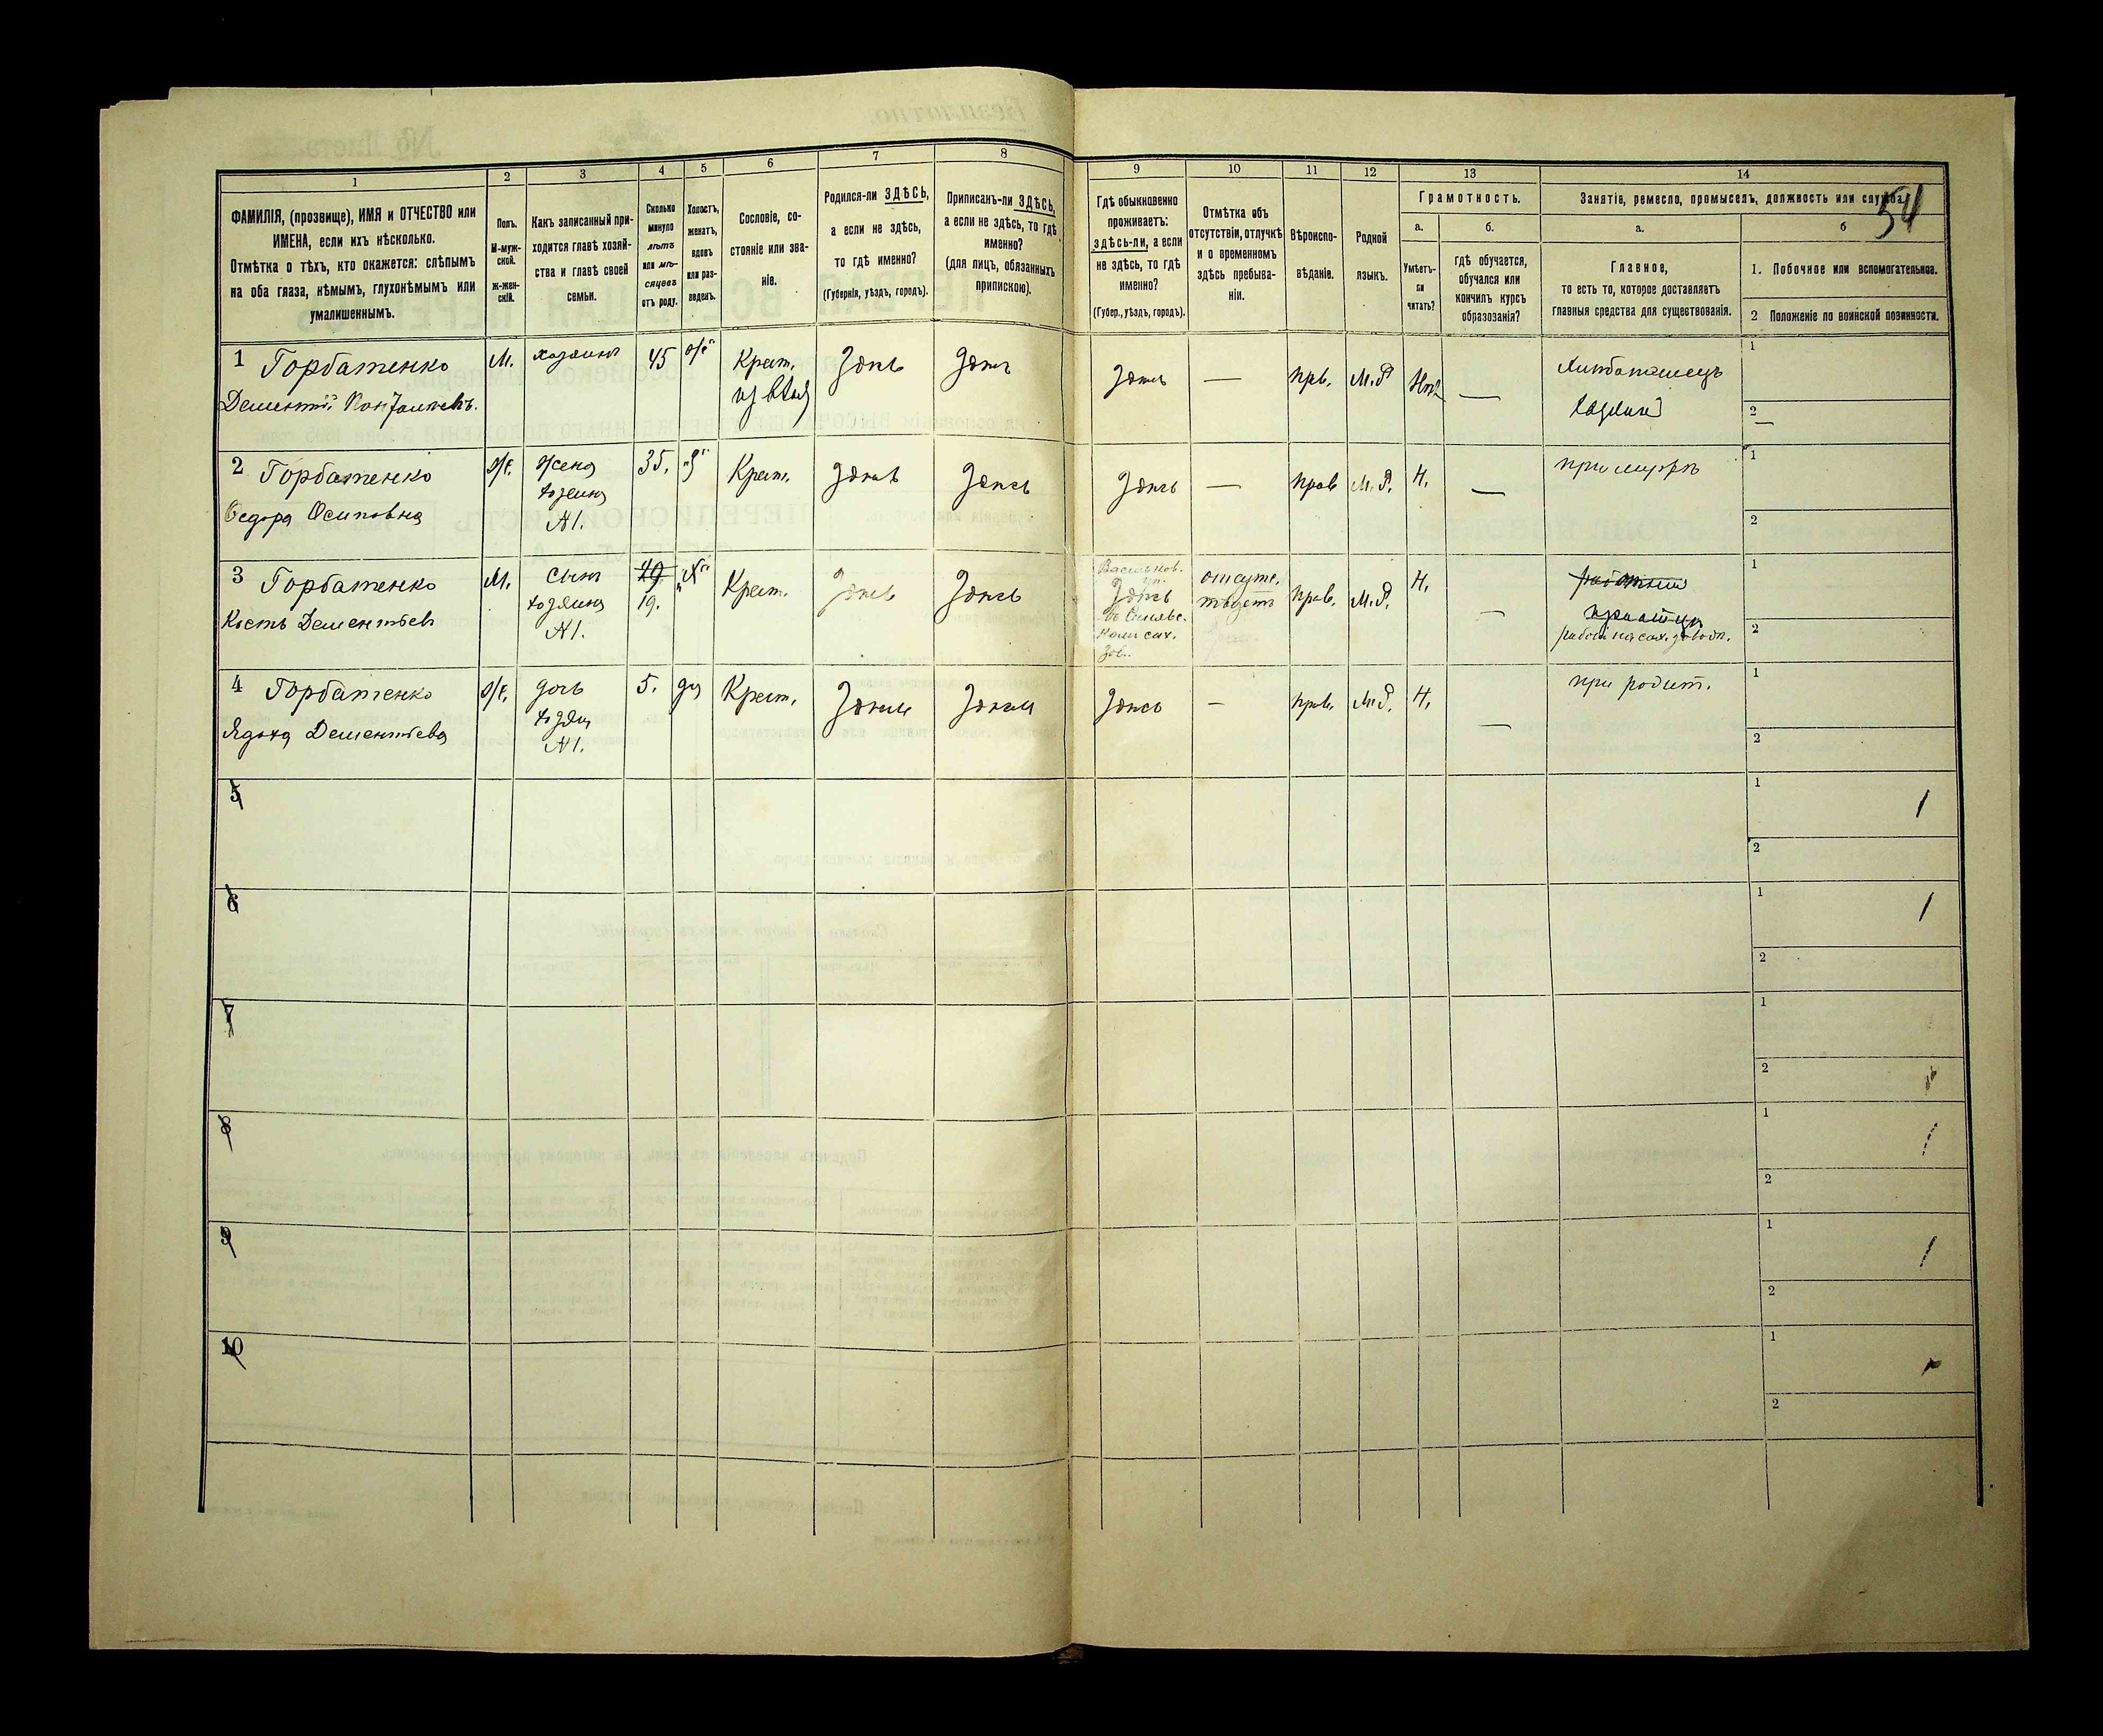 54
1 2 3 4 5 6 7 8 9 10 11 12 13 14
ФАМИЛІЯ, (прозвище), ИМЯ и ОТЧЕСТВО или
ИМЕНА, если ихъ нѣсколько.
Отмѣтка о тѣхъ, кто окажется: слѣпымъ
на оба глаза, нѣмымъ, глухонѣмымъ или
умалишеннымъ.
Полъ.
М-муж-
ской.
Ж-жен-
скій.
Какъ записанный при-
ходится главѣ хозяй-
ства и главѣ своей
семьи.
Сколько
минуло
лѣтъ
или мѣ-
сяцевъ
отъ роду.
Холостъ,
женатъ,
вдовъ
или раз-
веденъ.
Сословіе, со-
стояніе или зва-
ніе.
Родился-ли ЗДѢСЬ,
а если не здѣсь,
то гдѣ именно?
(Губернія, уѣздъ, городъ).
Приписанъ-ли ЗДѢСЬ,
а если не здѣсь, то гдѣ
именно?
(для лицъ, обязанныхъ
припискою).
Гдѣ обыкновенно
проживаетъ:
здѣсь-ли, а если
не здѣсь, то гдѣ
именно?
(Губер., уѣздъ, городъ).
Отмѣтка объ
отсутствіи, отлучкѣ
и о временномъ
здѣсь пребыва-
ніи.
Вѣроиспо-
вѣданіе.
Родной
языкъ.
Грамотность.
а.
Умѣетъ-
ли
читать?
б.
гдѣ обучается,
обучался или
кончилъ курсъ
образованія?
Занятіе, ремесло, промыселъ, должность или служба.
а.
Главное,
то есть то, которое доставляетъ
главныя средства для существованія.
б
1. Побочное или вспомогательное.
2 Положеніе по воинской повинности.
1 Горбатенко М. хозяинъ 45 Крест. Здѣсь Здѣсь Здѣсь — прв. М.Р. — 1
Дементій хозяинъ 2 —
2 Горбатенко Ж. жена 35. Крест. Здѣсь Здѣсь Здѣсь — прав М.Р. Н. — при мужѣ 1
Федора Осиповна хозяина 2
N1.
3 Горбатенко М. сынъ 19. Крест. Здѣсь Здѣсь Васильков.
Кость Дементьев хозяина уп.
N1. Здѣсь
сах.
зав.
отсутс.
твуетъ прав. М.Р. Н. — 1
работ. на сах. завод. 2
4 Горбатенко Ж. дочь 5. дц Крест. Здѣсь Здѣсь Здѣсь — прав. М.Р. Н. — при родит. 1
Ядоха Дементьева хозяи 2
N1.
5 1
2
6 1
2
7 1
2
8 1
2
9 1
2
10 1
2